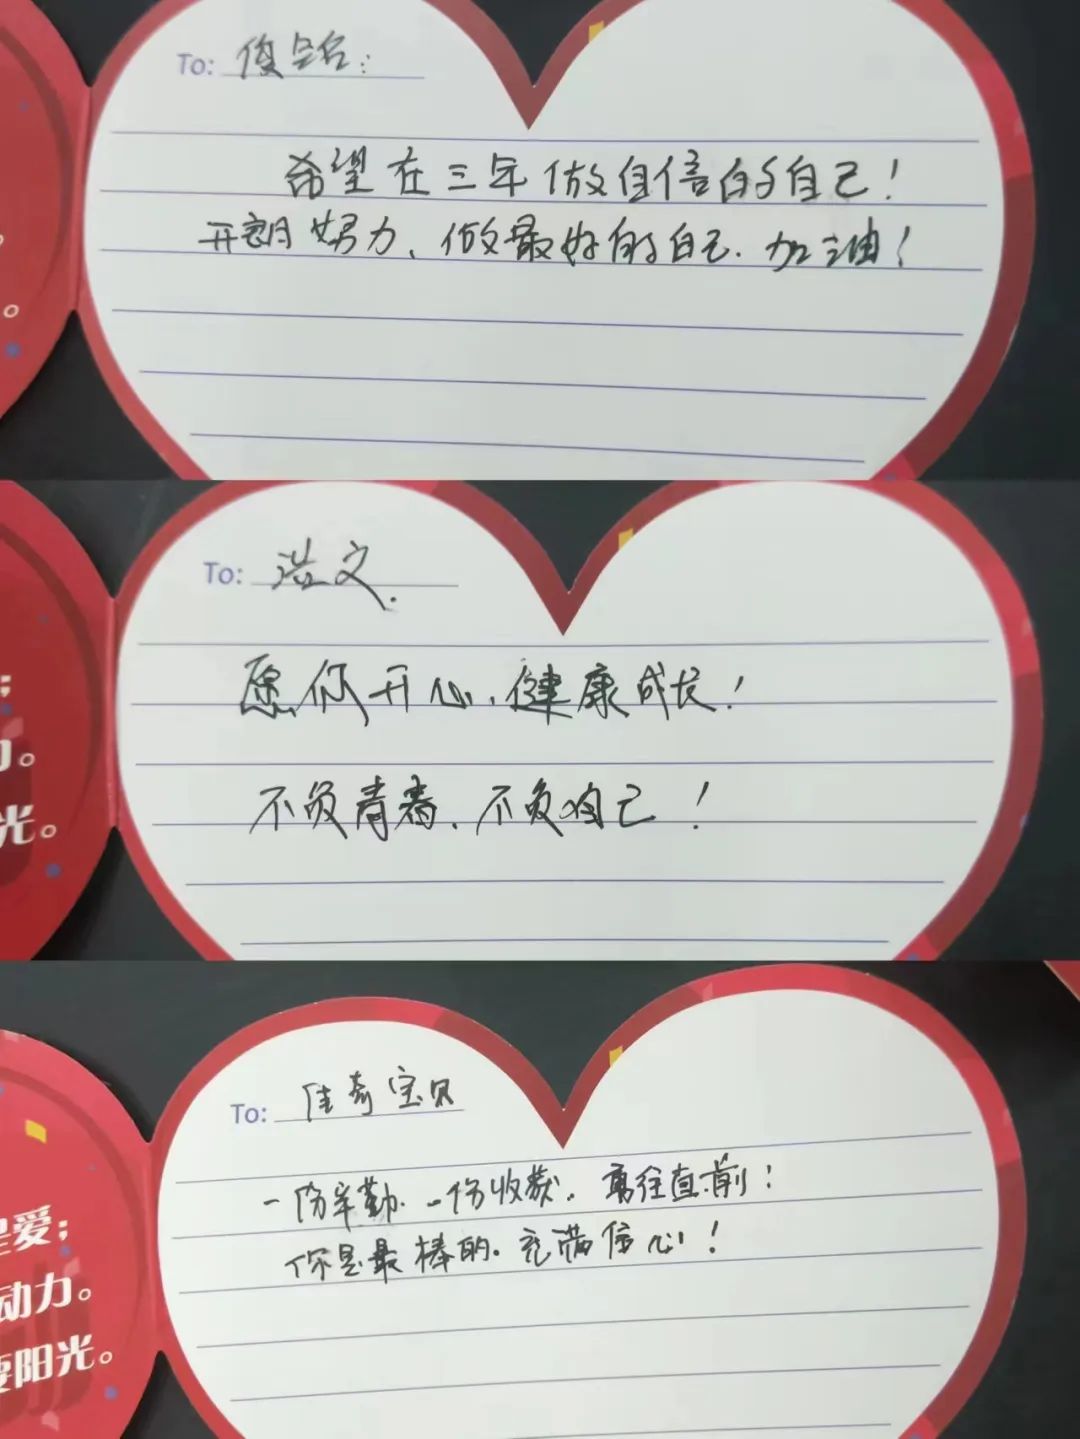 To:
希望在三年做自信的自己！
开朗努力、做最好的自己.加油！
。
To: 浩文.
愿你开心,健康成长！
不负青春,不负自己！
；
。
光。
To: 佳奇宝贝
一份辛勤.一份收获.勇往直前！
你是最棒的.充满信心！
是爱；
动力。
要阳光。